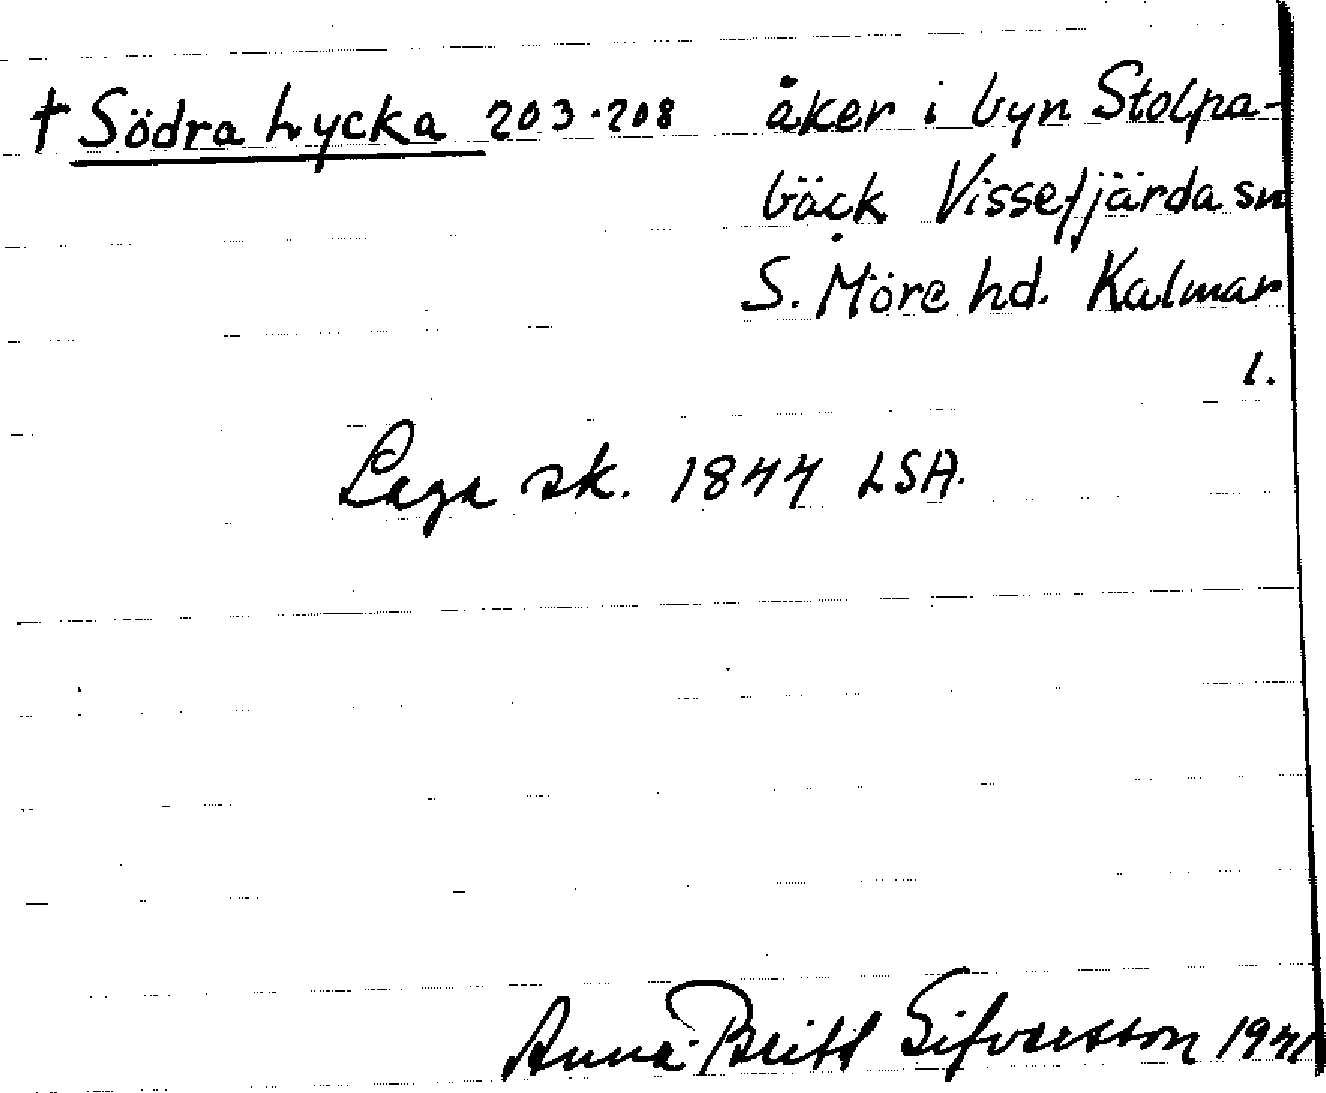 † Södra Lycka 203-208 åker i byn Stolpa-
bäck Vissefjärda sn
S. Möre hd. Kalmar
l.
Laga sk. 1844 LSA.
Anna-Britt Sifvertsson 1941